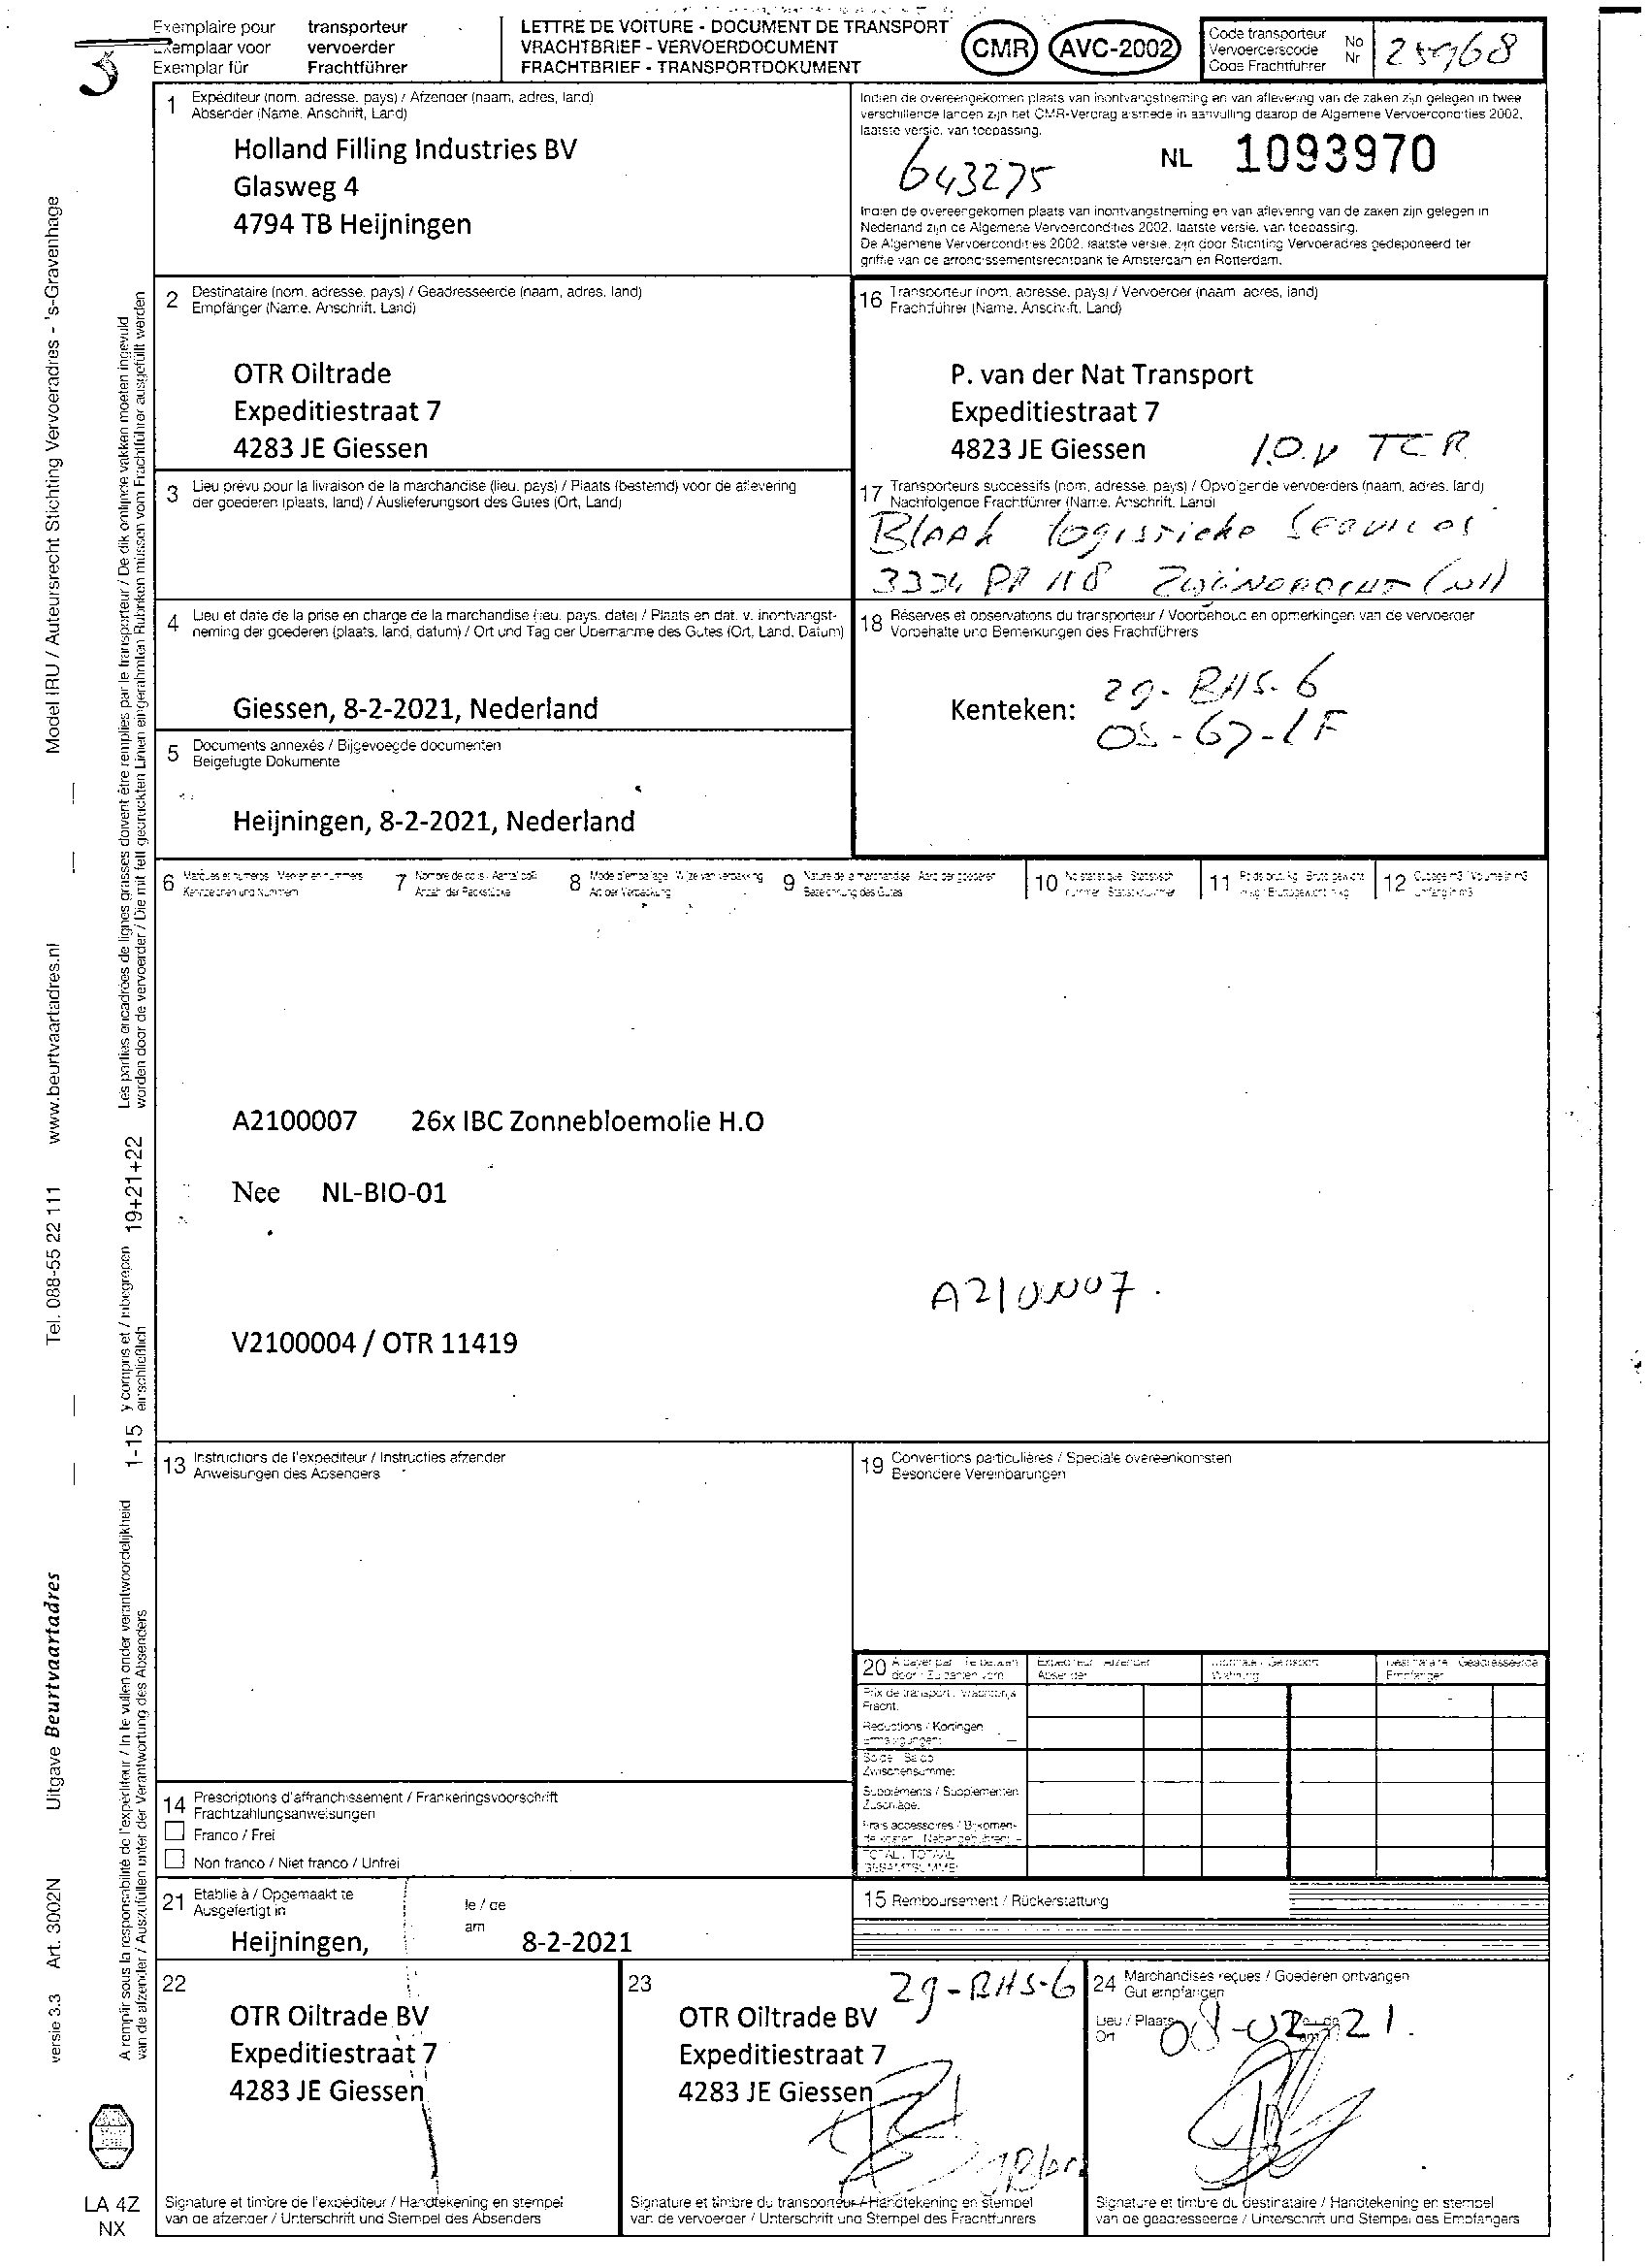 3
Exemplaire pour transporteur
Exemplaar voor vervoerder
Exemplar für Frachtführer
LETTRE DE VOITURE - DOCUMENT DE TRANSPORT
VRACHTBRIEF - VERVOERDOCUMENT
FRACHTBRIEF - TRANSPORTDOKUMENT
CMR AVC-2002
Code transporteur No
Vervoerderscode Nr
Code Frachtführer
1 Expéditeur (nom, adresse, pays) / Afzender (naam, adres, land)
Absender (Name, Anschrift, Land)
Holland Filling Industries BV
Glasweg 4
4794 TB Heijningen
Indien de overeengekomen plaats van inontvangstneming en van aflevering van de zaken zijn gelegen in twee
verschillende landen zijn het CMR-Verdrag alsmede in aanvulling daarop de Algemene Vervoercondities 2002,
laatste versie, van toepassing.
643275
NL 1093970
Indien de overeengekomen plaats van inontvangstneming en van aflevering van de zaken zijn gelegen in
Nederland zijn de Algemene Vervoercondities 2002, laatste versie, van toepassing.
De Algemene Vervoercondities 2002, laatste versie, zijn door Stichting Vervoeradres gedeponeerd ter
griffie van de arrondissementsrechtbank te Amsterdam en Rotterdam.
2 Destinataire (nom, adresse, pays) / Geadresseerde (naam, adres, land)
Empfänger (Name, Anschrift, Land)
OTR Oiltrade
Expeditiestraat 7
4283 JE Giessen
16 Transporteur (nom, adresse, pays) / Vervoerder (naam, adres, land)
Frachtführer (Name, Anschrift, Land)
P. van der Nat Transport
Expeditiestraat 7
4823 JE Giessen
I.O.V TCR
3 Lieu prévu pour la livraison de la marchandise (lieu, pays) / Plaats (bestemd) voor de aflevering
der goederen (plaats, land) / Auslieferungsort des Gutes (Ort, Land)
17 Transporteurs successifs (nom, adresse, pays) / Opvolgende vervoerders (naam, adres, land)
Nachfolgende Frachtführer (Name, Anschrift, Land)
Blaak logistieke Services
4 Lieu et date de la prise en charge de la marchandise (lieu, pays, date) / Plaats en dat. v. inontvangst-
neming der goederen (plaats, land, datum) / Ort und Tag der Übernahme des Gutes (Ort, Land, Datum)
Giessen, 8-2-2021, Nederland
18 Réserves et observations du transporteur / Voorbehoud en opmerkingen van de vervoerder
Vorbehalte und Bemerkungen des Frachtführers
Kenteken: 29-BHS-6
5 Documents annexés / Bijgevoegde documenten
Beigefügte Dokumente
Heijningen, 8-2-2021, Nederland
6 Marques et numéros Merken en nummers
Kennzeichen und Nummern
7 Nombre de colis Aantal colli
Anzahl der Packstücke
8 Mode d'emballage Wijze van verpakking
Art der Verpackung
9 Nature de la marchandise Aard der goederen
Bezeichnung des Gutes
10 No statistique Statistisch
nummer Statistiknummer
11
12
A2100007 26x IBC Zonnebloemolie H.O
Nee NL-BIO-01
A2100007.
V2100004 / OTR 11419
13 Instructions de l'expéditeur / Instructies afzender
Anweisungen des Absenders
19 Conventions particulières / Speciale overeenkomsten
Besondere Vereinbarungen
20
Réductions / Kortingen
Zwischensumme:
Suppléments / Supplementen
Zuschläge:
14 Prescriptions d'affranchissement / Frankeringsvoorschrift
Frachtzahlungsanweisungen
Franco / Frei
Non franco / Niet franco / Unfrei
21 Etablie à / Opgemaakt te
Ausgefertigt in
le / de
am
Heijningen, 8-2-2021
15 Remboursement / Rückerstattung
22
OTR Oiltrade BV
Expeditiestraat 7
4283 JE Giessen
Signature et timbre de l'expéditeur / Handtekening en stempel
van de afzender / Unterschrift und Stempel des Absenders
23
29-BHS-6
OTR Oiltrade BV
Expeditiestraat 7
4283 JE Giessen
Signature et timbre du transporteur / Handtekening en stempel
van de vervoerder / Unterschrift und Stempel des Frachtführers
24 Marchandises reçues / Goederen ontvangen
Gut empfangen
Lieu / Plaats
Ort
08-02-21.
Signature et timbre du destinataire / Handtekening en stempel
van de geadresseerde / Unterschrift und Stempel des Empfängers
Model IRU / Auteursrecht Stichting Vervoeradres - 's-Gravenhage
www.beurtvaartadres.nl
Tel. 088-55 22 111
Uitgave Beurtvaartadres
Art. 3002N
versie 3.3
Les parties encadrées de lignes grasses doivent être remplies par le transporteur / De dik omlijnde vakken moeten ingevuld
worden door de vervoerder / Die mit fett gedruckten Linien eingerahmten Rubriken müssen vom Frachtführer ausgefüllt werden
1-15 y compris et / inbegrepen einschließlich 19+21+22
A remplir sous la responsabilité de l'expéditeur / In te vullen onder verantwoordelijkheid
van de afzender / Auszufüllen unter der Verantwortung des Absenders
LA 4Z
NX